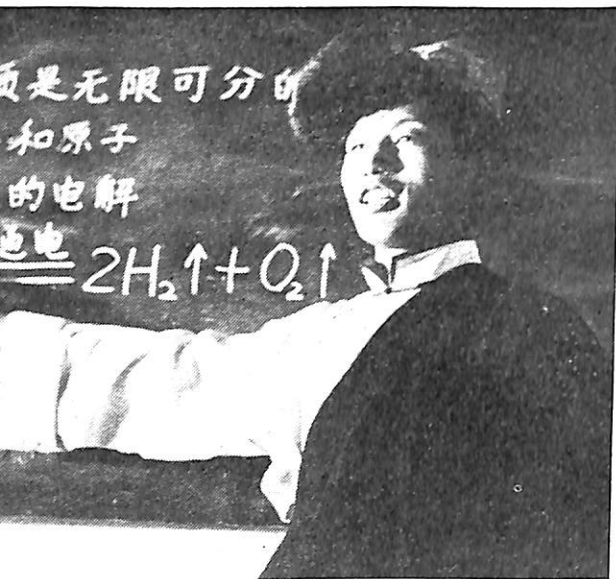 质是无限可分的
和原子
的电解
通电
══ 2H₂↑+O₂↑